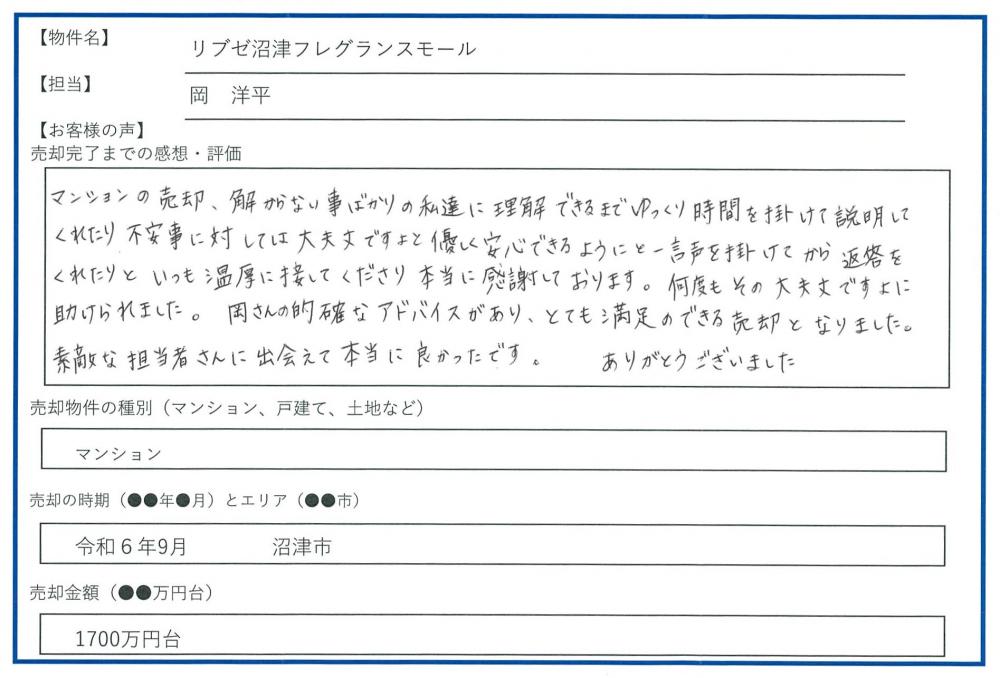 【物件名】
リブゼ沼津フレグランスモール
【担当】
岡　洋平
【お客様の声】
売却完了までの感想・評価
マンションの売却、解からない事ばかりの私達に理解できるまでゆっくり時間を掛けて説明して
くれたり不安事に対しては大夫丈ですよと優しく安心できるようにと一言声を掛けてから返答を
くれたりといつも温厚に接してくださり本当に感謝しております。何度もその大夫丈ですよに
助けられました。岡さんの的確なアドバイスがあり、とても満足のできる売却となりました。
素敵な担当者さんに出会えて本当に良かったです。　ありがとうございました
売却物件の種別（マンション、戸建て、土地など）
マンション
売却の時期（●●年●月）とエリア（●●市）
令和６年9月　沼津市
売却金額（●●万円台）
1700万円台